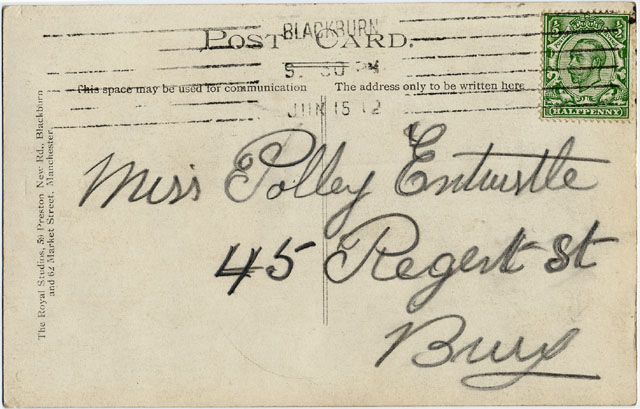 BLACKBURN
POST CARD.
5. 30 PM
This space may be used for communication
The address only to be written here
JUN 15 12
HALFPENNY
Miss Polley Entwistle
45 Regent St
Bury
The Royal Studios, 59 Preston New Rd., Blackburn
and 62 Market Street, Manchester